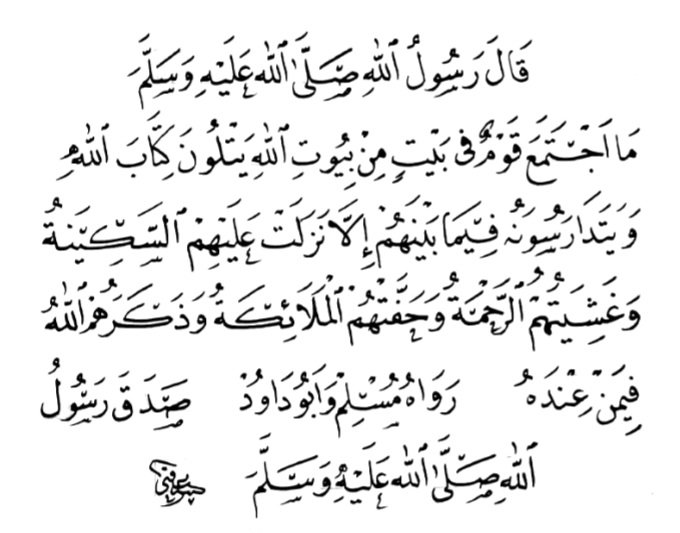 قَالَ رَسُولُ ٱللهِ صَلَّىٰ ٱللهُ عَلَيْهِ وَسَلَّمَ
مَا ٱجْتَمَعَ قَوْمٌ فِي بَيْتٍ مِنْ بُيُوتِ ٱللهِ يَتْلُونَ كِتَابَ اللهِ
وَيَتَدَارَسُونَهُ فِيمَا بَيْنَهُمْ إِلَّا نَزَلَتْ عَلَيْهِمْ ٱلسَّكِينَةُ
وَغَشِيَتْهُمُ ٱلرَّحْمَةُ وَحَفَّتْهُمُ ٱلْمَلَائِكَةُ وَذَكَرَهُمُ ٱللهُ
فِيمَنْ عِنْدَهُ رَوَاهُ مُسْلِمْ وَأَبُودَاوُدْ صَدَقَ رَسُولُ
ٱللهِ صَلَّىٰ ٱللهُ عَلَيْهِ وَسَلَّمَ